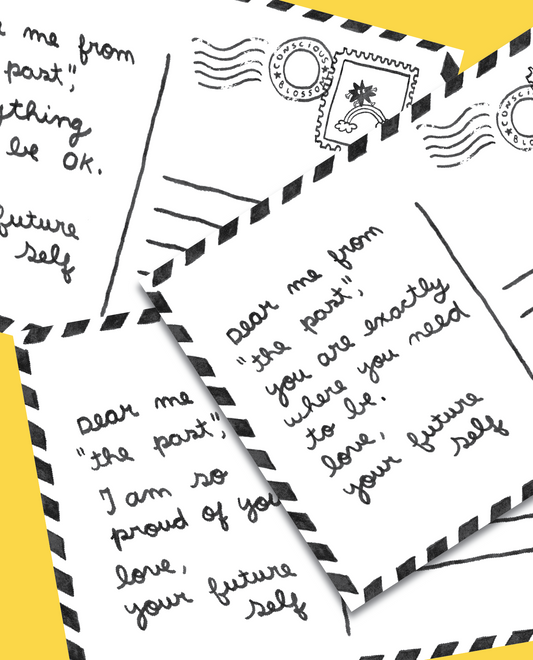 me from
past",
be OK.
future
self
CONSCIOUS
BLOSSOM
Dear me from
"the past",
you are exactly
where you need
to be.
love,
your future
self
Dear me
"the past",
I am so
proud of you
love,
your future
self